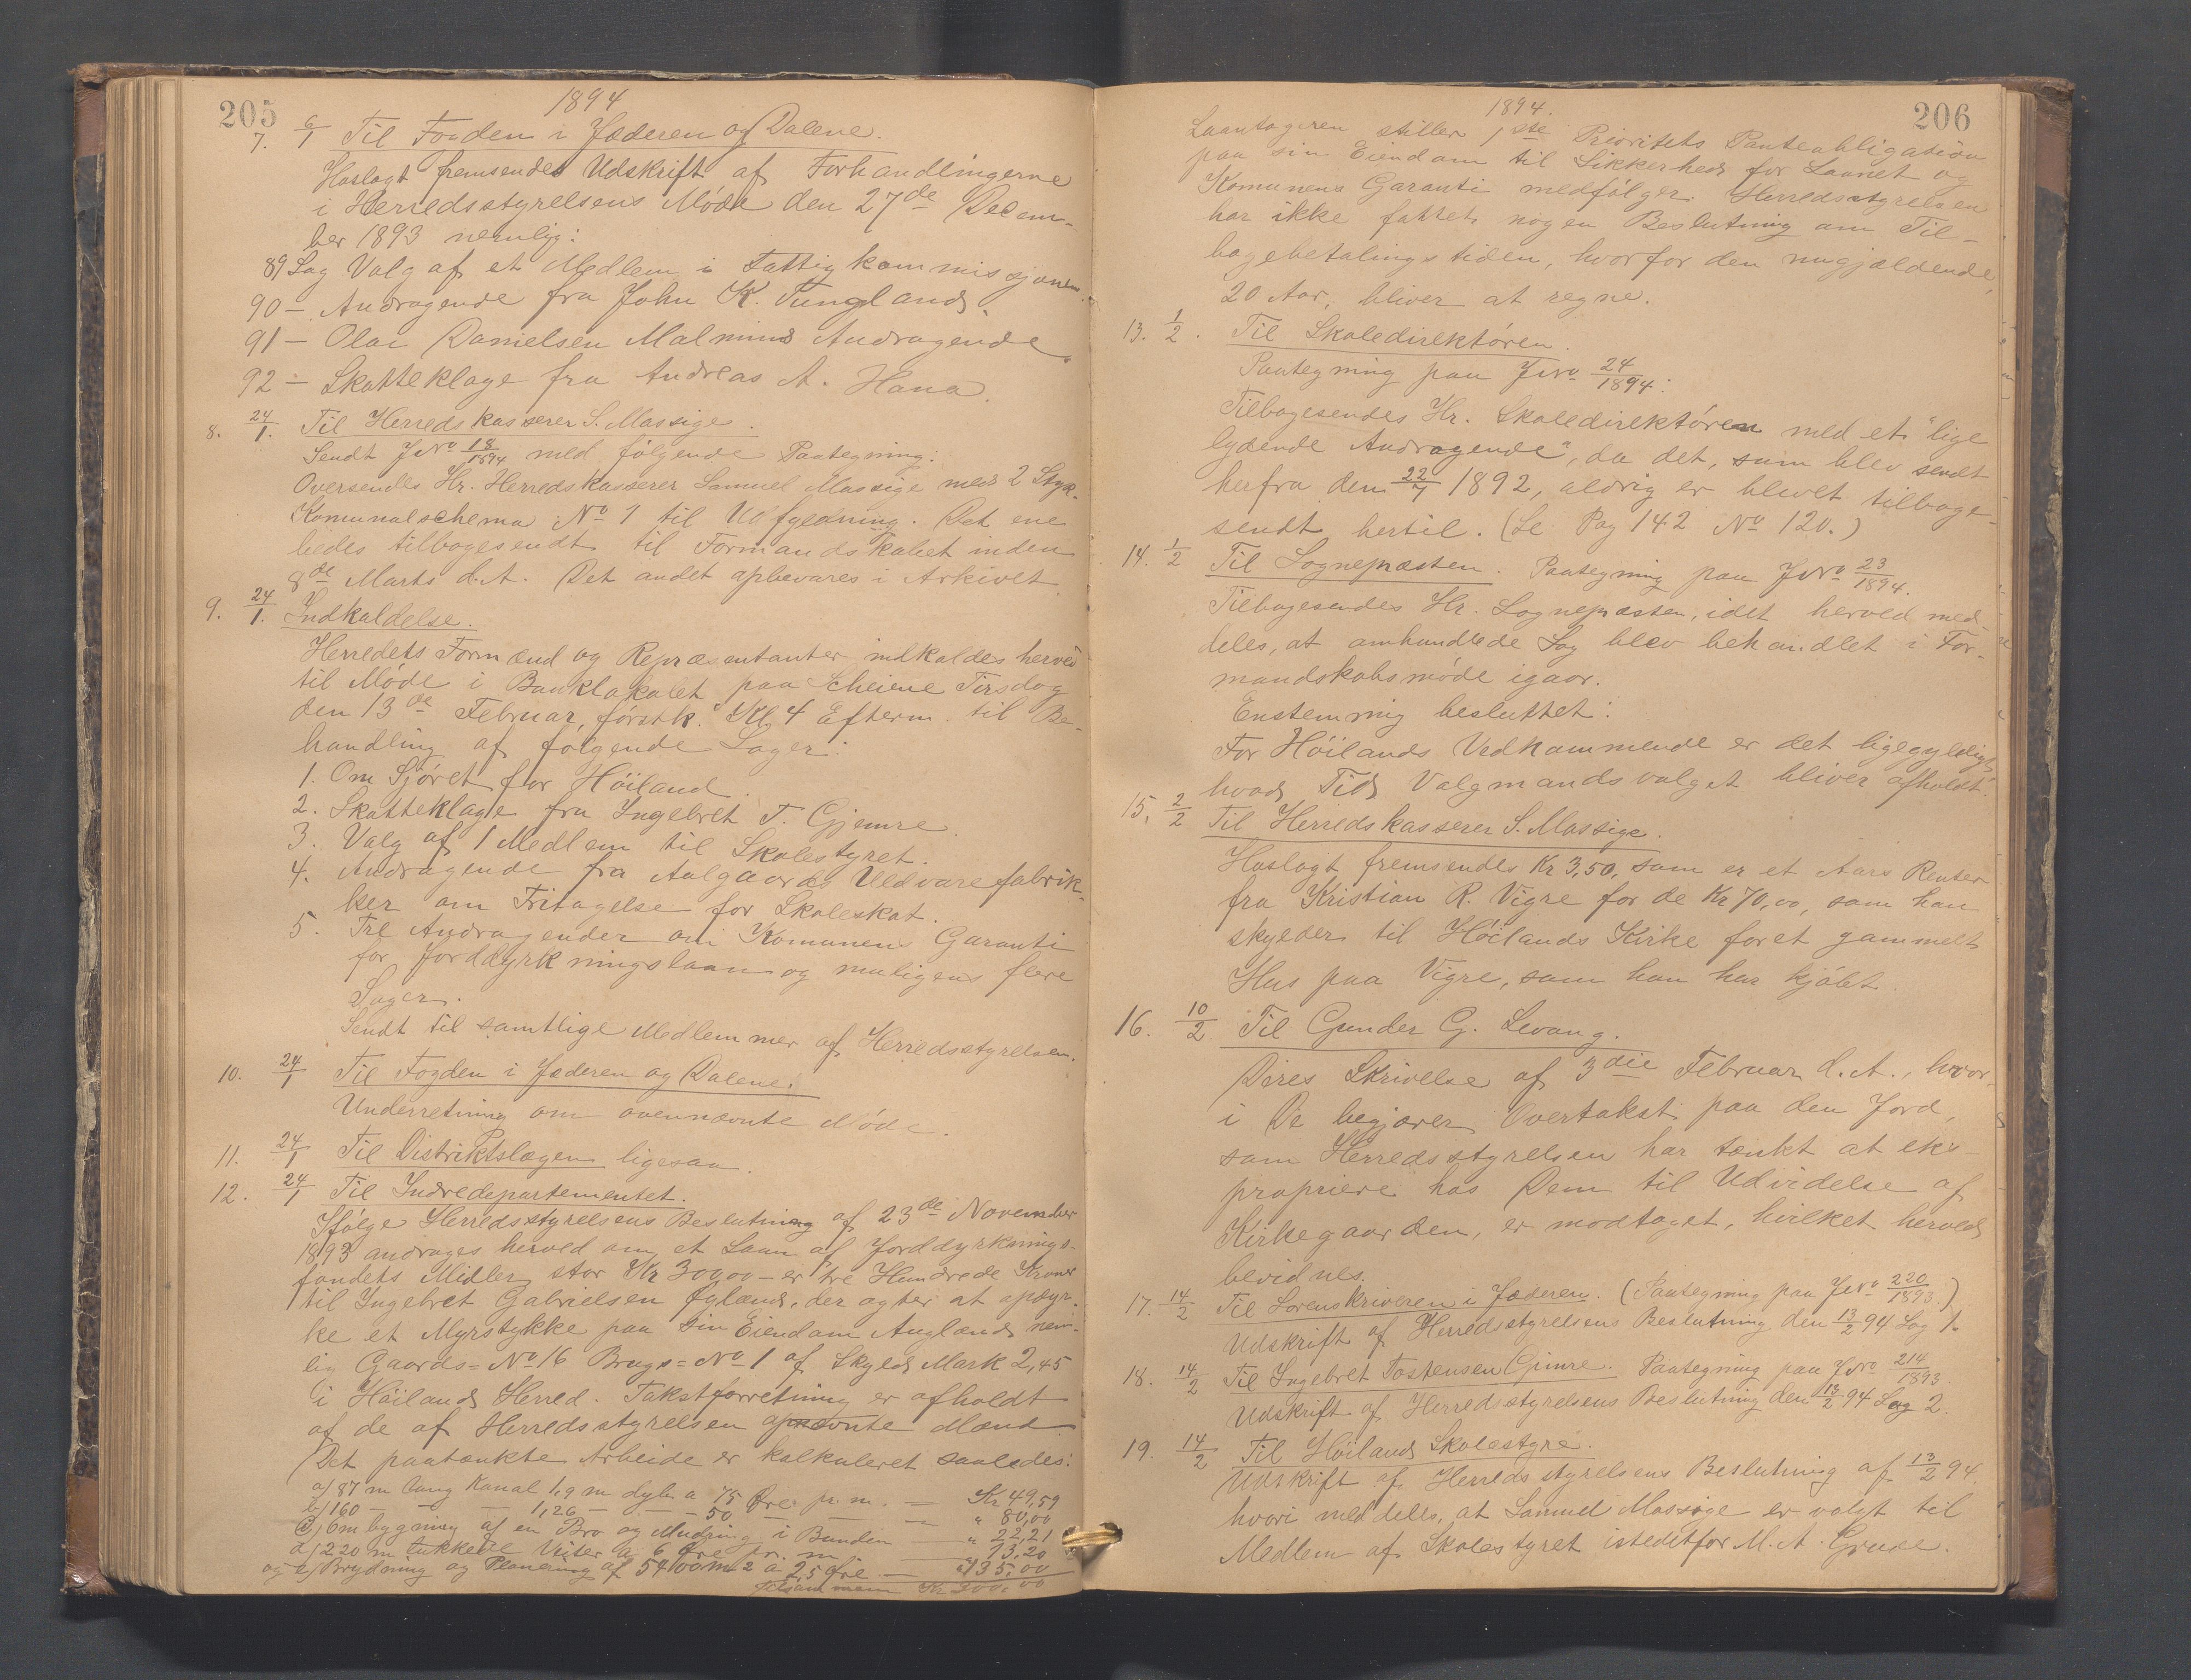 205
1894
7. 6/1 Til Fogden i Jæderen og Dalene.
Hoslagt fremsendes Udskrift af Forhandlingerne
i Herredsstyrelsens Möde den 27de Decem-
ber 1893 nemlig:
89 Sag Valg af et Medlem i Fattigkommissjonen.
90 – Andragende fra John K. Tunglands.
91 – Olai Danielsen Malmins Andragende.
92 – Skatteklage fra Andreas A. Hana.
8. 24/1. Til Herredskasserer S. Massige.
Sendt JNo 18/1894 med fölgende Paategning:
Oversendes Hr. Herredskasserer Samuel Massige med 2 Styk.
Komunalschema No 1 til Udfyldning. Det ene
bedes tilbagesendt til Formandskabet inden
8de Marts d.A. Det andet opbevares i Arkivet.
9. 24/1. Indkaldelse.
Herredets Formænd og Repræsentanter indkaldes herved
til Möde i Banklokalet paa Scheiene Tirsdag
den 13de Februar förstk. Kl. 4 Efterm. til Be-
handling af fölgende Sager:
1. Om Sjöret for Höiland.
2. Skatteklage fra Ingebret T. Gjemre.
3. Valg af 1 Medlem til Skolestyret.
4. Andragende fra Aalgaards Uldvarefabrik-
ker om Fritagelse for Skoleskat.
5. Tre Andragender om Komunens Garanti
for Jorddyrkningslaan og muligens flere
Sager.
Sendt til samtlige Medlemmer af Herredsstyrelsen.
10. 24/1 Til Fogden i Jæderen og Dalene.
Underretning om ovennævnte Möde.
11. 24/1 Til Distriktslægen ligesaa.
12. 24/1 Til Indredepartementet.
Ifölge Herredsstyrelsens Beslutning af 23de November
1893 andrages herved om et Laan af Jorddyrknings-
fondets Midler stor Kr 300,00 – er tre Hundrede Kroner
til Ingebret Gabrielsen Øglænd, der agter at opdyr-
ke et Myrstykke paa sin Eiendom Auglænd nem-
lig Gaards=No 16 Brugs=No 1 af Skyld Mark 2,45
i Höilands Herred. Takstforretning er afholdt
af de af Herredsstyrelsen opnævnte Mænd.
Det paatænkte Arbeide er kalkuleret saaledes:
a/ 87 m lang Kanal 1,9 m dyb a 75 Øre pr. m. — Kr 49,59
b/ 160 – – – 1,26 – – 50 – – – " 80,00
c/ Ombygning af en Bro og Mudring i Bunden – " 22,21
d/ 220 m lukkede Veiter a 6 Øre pr. m — 13,20
og e/ Brydning og Planering af 5400 m2 a 2,5 Øre. — "135,00
Tilsammen Kr 300,00
206
1894.
Laantageren stiller 1ste Prioritets Panteobligation
paa sin Eiendom til Sikkerhed for Laanet og
Komunens Garanti medfölger. Herredsstyrelsen
har ikke fattet nogen Beslutning om Til-
bagebetalingstiden, hvorfor den nugjældende,
20 Aar, bliver at regne.
13. 1/2. Til Skoledirektören.
Paategning paa JNo 24/1894:
Tilbagesendes Hr. Skoledirektören med et "lige
lydende Andragende", da det, som blev sendt
herfra den 22/7 1892, aldrig er blevet tilbage-
sendt hertil. (Se Pag 142 No 120.)
14. 1/2 Til Sognepræsten. Paategning paa JNo 23/1894.
Tilbagesendes Hr. Sognepræsten, idet herved med-
deles, at omhandlede Sag blev behandlet i For-
mandskabsmöde igaar.
Enstemmig besluttet:
"For Höilands Vedkommende er det ligegyldigt,
hvad Tid Valgmandsvalget bliver afholdt."
15. 2/2 Til Herredskasserer S. Massige.
Hoslagt fremsendes Kr 3,50, som er et Aars Renter
fra Kristian R. Vigre for de Kr 70,00, som han
skylder til Höilands Kirke for et gammelt
Hus paa Vigre, som han har kjöbt.
16. 10/2 Til Gunder G. Levang.
Deres Skrivelse af 3die Februar d.A., hvor-
i De begjærer Overtakst paa den Jord,
som Herredsstyrelsen har tænkt at eks-
propriere hos Dem til Udvidelse af
Kirkegaarden, er modtaget, hvilket herved
bevidnes.
17. 14/2 Til Sorenskriveren i Jæderen. (Paategning paa JNo 220/1893.)
Udskrift af Herredsstyrelsens Beslutning den 13/2 94 Sag 1.
18. 14/2 Til Ingebret Tostensen Gimre. Paategning paa JNo 214/1893.
Udskrift af Herredsstyrelsens Beslutning den 13/2 94 Sag 2.
19. 14/2 Til Höilands Skolestyre.
Udskrift af Herredsstyrelsens Beslutning af 13/2 94,
hvori meddeles, at Samuel Massige er valgt til
Medlem af Skolestyret istedetfor M. A. Grude.